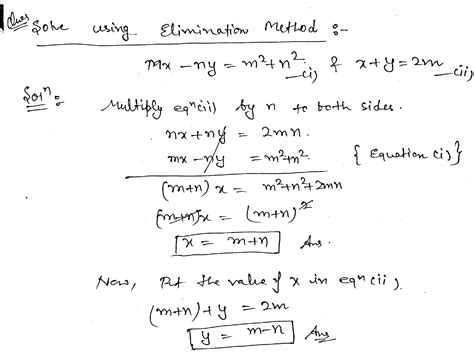 Ques Solve using Elimination Method :-
mx - ny = m²+n² —(i) & x+y = 2m —(ii)
Solⁿ :- Multiply eqⁿ(ii) by n to both sides.
nx + ny = 2mn.
mx - ny = m²+n². { Equation (i) }
(m+n) x = m²+n²+2mn
(m+n)x = (m+n)²
x = m+n Ans.
Now, Put the value of x in eqⁿ(ii),
(m+n)+y = 2m
y = m-n Ans